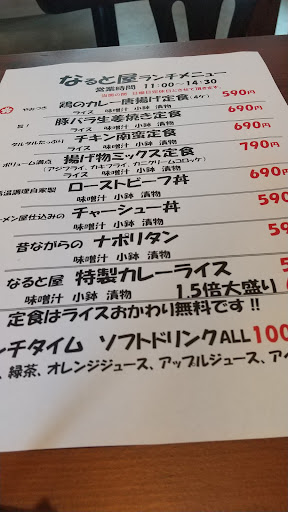 なると屋ランチメニュー
営業時間 11:00-14:30
やみつき 鶏のカレー唐揚げ定食(4ケ) 590円
ライス 味噌汁 小鉢 漬物
旨! 豚バラ生姜焼き定食 690円
ライス 味噌汁 小鉢 漬物
タルタルたっぷり チキン南蛮定食 690円
ライス 味噌汁 小鉢 漬物
ボリューム満点 揚げ物ミックス定食 790円
(アジフライ、カキフライ、カニクリームコロッケ)
ライス 味噌汁 小鉢 漬物
温調理自家製 ローストビーフ丼 590
味噌汁 小鉢 漬物
ーメン屋仕込みの チャーシュー丼 59
味噌汁 小鉢 漬物
昔ながらの ナポリタン 5
味噌汁 小鉢 漬物
なると屋 特製カレーライス
味噌汁 小鉢 漬物 1.5倍大盛り
定食はライスおかわり無料です!!
ンチタイム ソフトドリンクALL100
、緑茶、オレンジジュース、アップルジュース、アイ